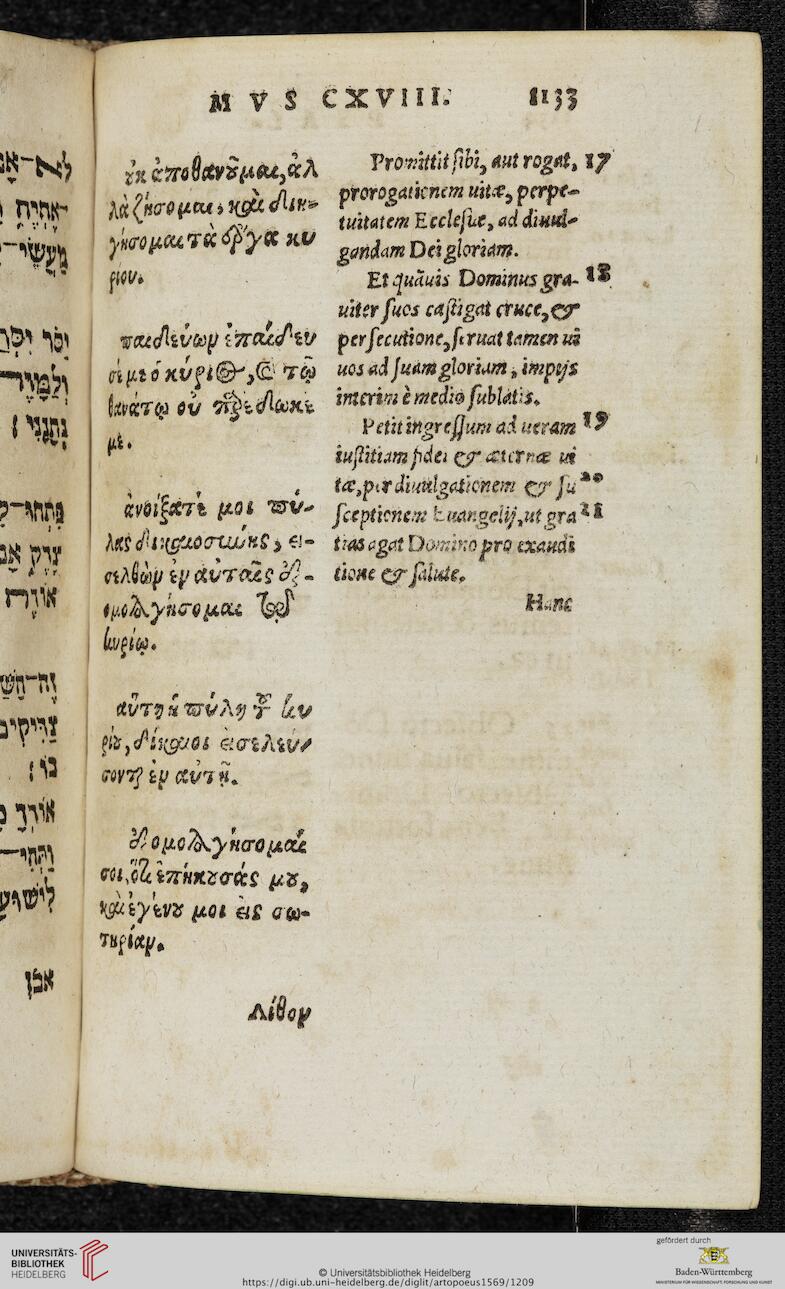 MVS CXVIII. 1133
οὐκ ἀποθανοῦμαι, ἀλ
λὰ ζήσομαι, καὶ διη-
γήσομαι τὰ ἔργα κυ
ρίου.
παιδεύων ἐπαίδευ
σέ με ὁ κύριος, καὶ τῷ
θανάτῳ οὐ παρέδωκέ
με.
ἀνοίξατέ μοι πύ-
λας δικαιοσύνης, εἰ-
σελθὼν ἐν αὐταῖς ἐξ-
ομολογήσομαι τῷ
κυρίῳ.
αὕτη ἡ πύλη τοῦ κυ
ρίου, δίκαιοι εἰσελεύ-
σονται ἐν αὐτῇ.
ἐξομολογήσομαί
σοι, ὅτι ἐπήκουσάς μου,
καὶ ἐγένου μοι εἰς σω-
τηρίαν.
Λίθον
Promittit sibi, aut rogat, 17
prorogationem uitæ, perpe-
tuitatem Ecclesiæ, ad diuul-
gandam Dei gloriam.
Et quãuis Dominus gra- 18
uiter suos castigat cruce, &
persecutione, seruat tamen ui
uos ad suam gloriam, impijs
interim è medio sublatis.
Petit ingressum ad ueram 19
iustitiam fidei & æternæ ui
tæ, per diuulgationem & su 20
sceptionem Euangelij, ut gra 21
tias agat Domino pro exaudi
tione & salute.
Hanc
לא־
אֶחְיֶה
מַעֲשֵׂי־
יַסֹּר
וְלַמָּוֶת
נְתָנָנִי׃
פִּתְחוּ־
צֶדֶק
אוֹדֶה
זֶה־
צַדִּיקִים
בוֹ׃
אוֹדְךָ
וַתְּהִי־
לִישׁוּעָה
אבן
UNIVERSITÄTS-
BIBLIOTHEK
HEIDELBERG
© Universitätsbibliothek Heidelberg
https://digi.ub.uni-heidelberg.de/diglit/artopoeus1569/1209
gefördert durch
Baden-Württemberg
MINISTERIUM FÜR WISSENSCHAFT, FORSCHUNG UND KUNST